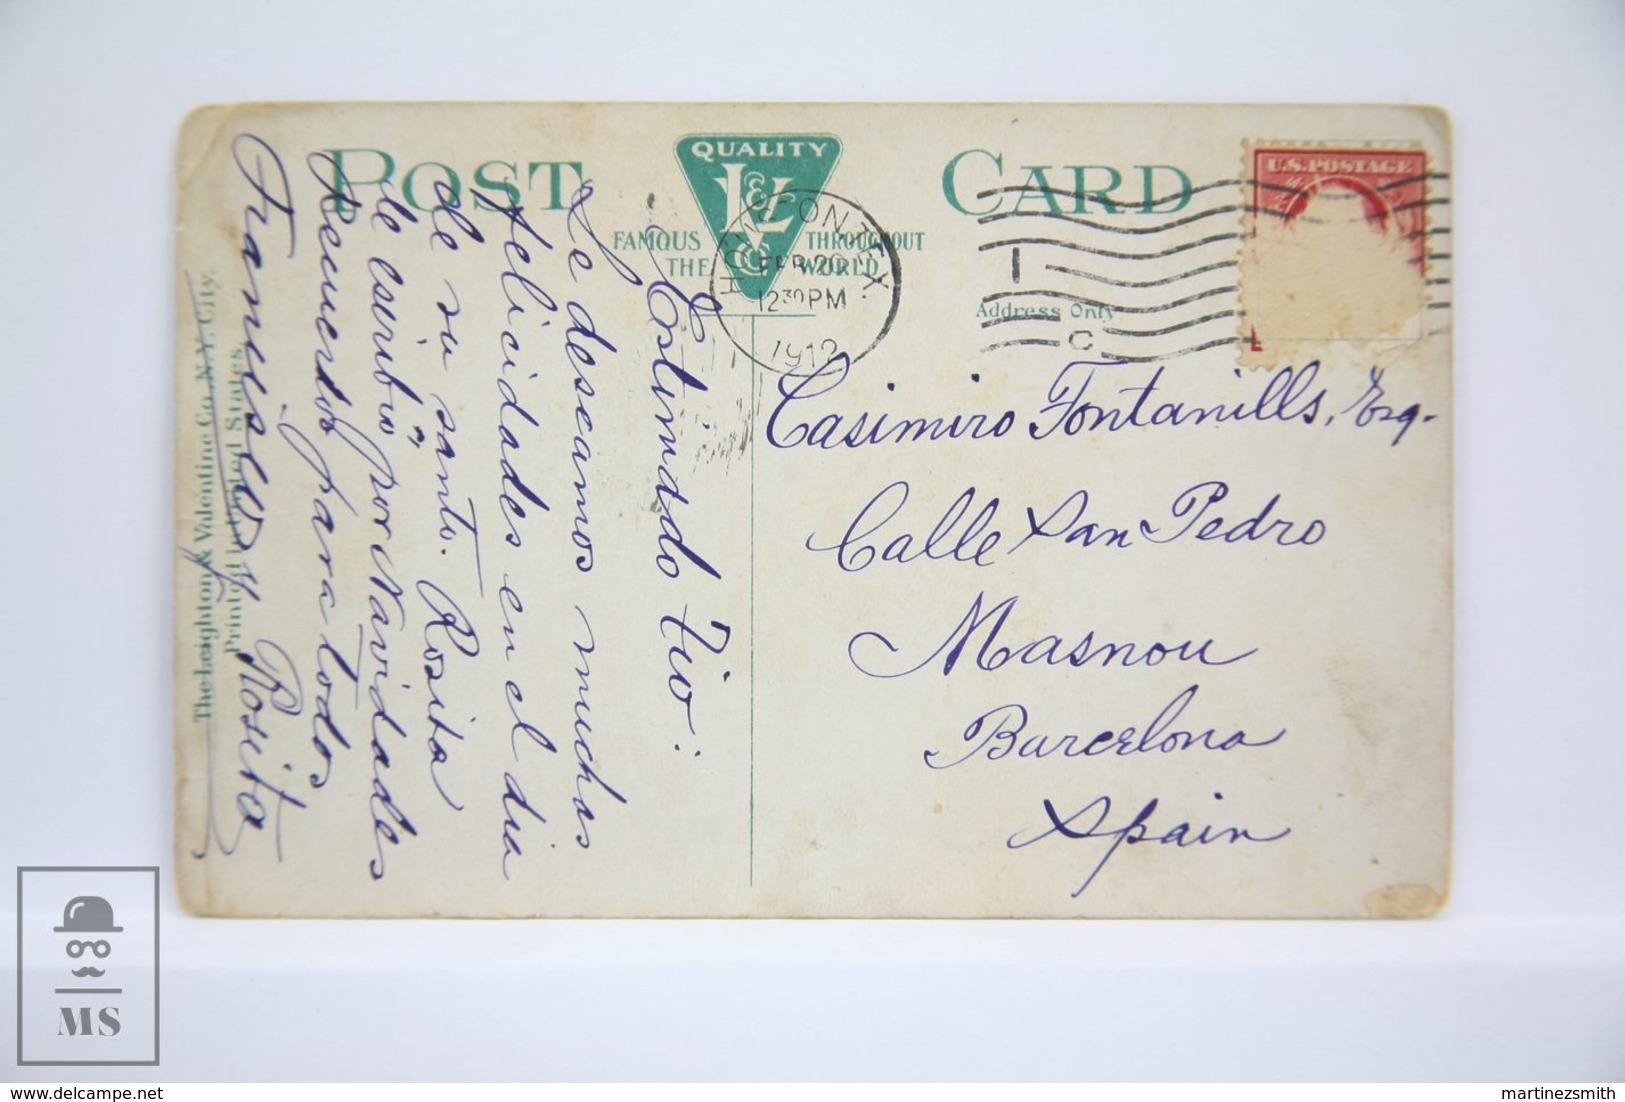 POST CARD
QUALITY
L & V Co
FAMOUS THROUGHOUT
THE WORLD
HOUSTON, TEX.
FEB 20
12 30 PM
1912
1
C
U.S. POSTAGE
Address Only
Estimado Tio:
Le deseamos muchas
felicidades en el dia
de su santo. Rosita
le escribió por Navidades
Recuerdos para todos
Francisco y Rosita
Casimiro Fontanills, Esq.
Calle San Pedro
Masnou
Barcelona
Spain
The Leighton & Valentine Co. N.Y. City.
Printed in United States
MS
martinezsmith